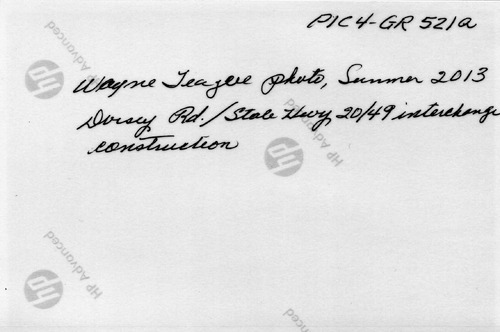 PIC4-GR 521a
Wayne Teague photo, Summer 2013
Dorsey Rd./State Hwy 20/49 interchange
construction
HP Advanced
HP Advanced
HP Advanced
HP Advanced
HP Advanced